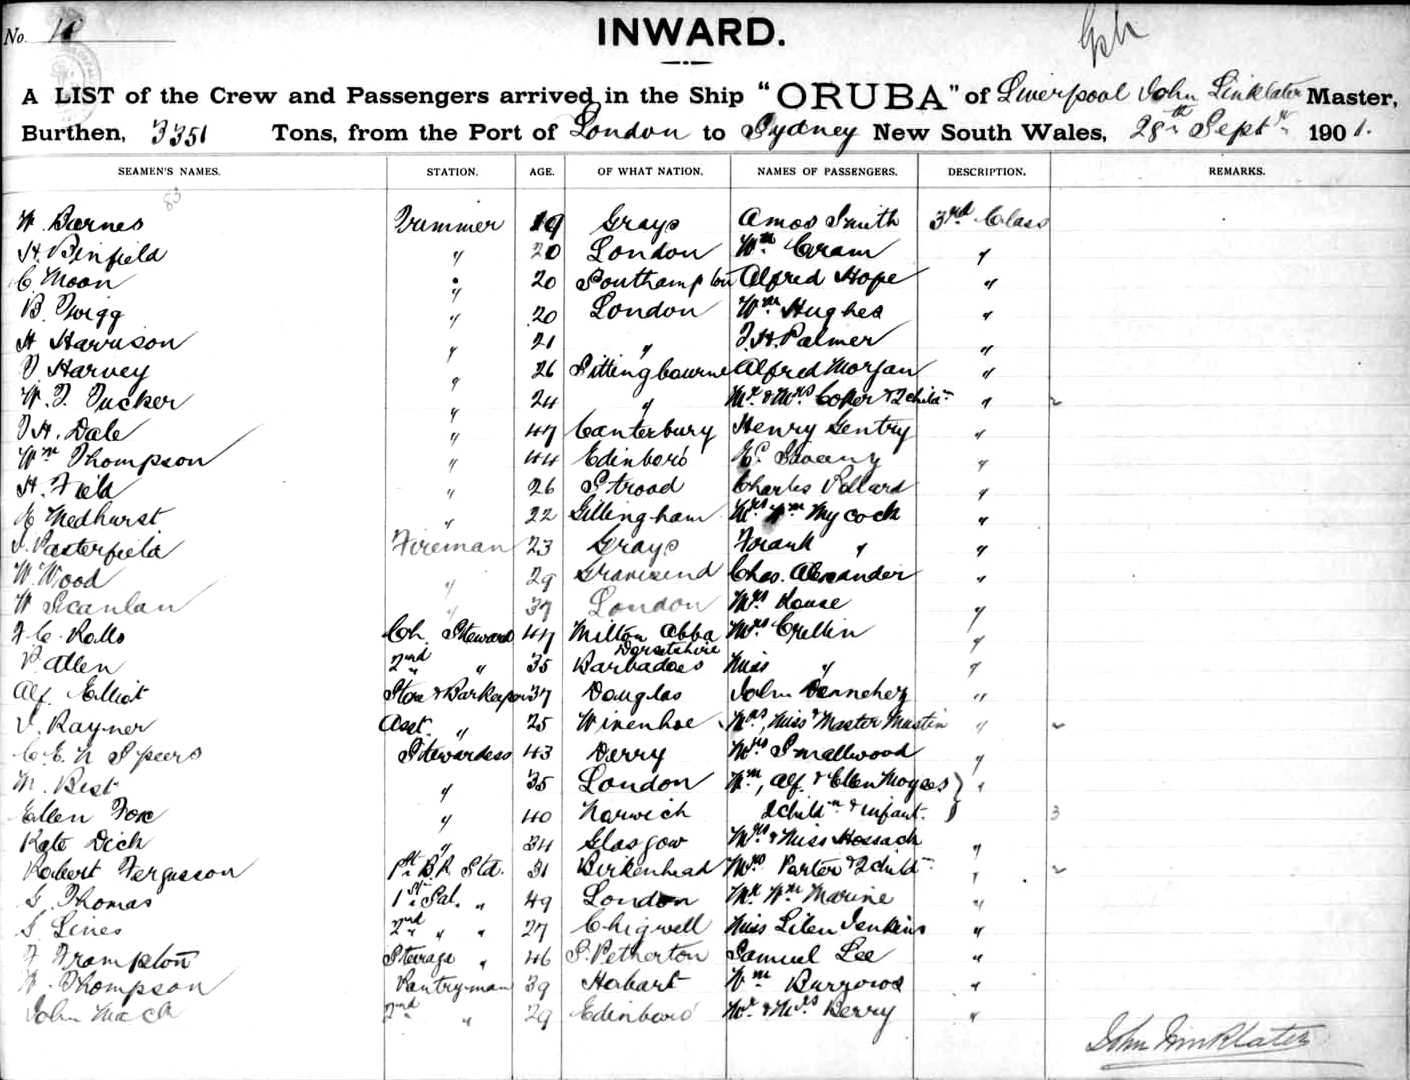 No. 10
INWARD.
A LIST of the Crew and Passengers arrived in the Ship "ORUBA" of Liverpool John Linklater Master,
Burthen, 3351 Tons, from the Port of London to Sydney New South Wales, 28th Septr 1901.
SEAMEN'S NAMES. STATION. AGE. OF WHAT NATION. NAMES OF PASSENGERS. DESCRIPTION. REMARKS.
83
W. Barnes Trimmer 19 Grays Amos Smith 3rd Class
H. Binfield " 20 London Wm Cram "
C Moon " 20 Southampton Alfred Hope "
B. Twigg " 20 London Wm Hughes "
H Harrison " 21 " J. H. Palmer "
J Harvey " 26 Sittingbourne Alfred Morgan "
W. J. Tucker " 24 " Mr & Mrs Coker & 2 childn " 2
J H. Dale " 47 Canterbury Henry Gentry "
Wm Thompson " 44 Edinboro' "
H. Field " 26 Strood Charles Pollard "
E Medhurst " 22 Gillingham Mrs Wm Mycock "
J. Pasterfield Fireman 23 Grays Frank " "
W. Wood " 29 Gravesend Chas. Alexander "
W Scanlan " 37 London Mrs House "
F C. Rolls Ch. Steward 47 Milton Abba Dorsetshire Mrs Crellin "
P. Allen 2nd " 35 Barbadoes Miss " "
Alf. Elliot Store & Barkeeper 37 Douglas John "
J. Rayner Asst. " 25 Wivenhoe Mrs, Miss & Master Mustin " 2
C. E. N Speers Stewardess 43 Derry Mrs Smallwood "
M. Best " 35 London Wm, Alf. & Ellen Moyses "
Ellen Fox " 40 Norwich 2 childn & infant. 3
Kate Dick " 34 Glasgow Mrs & Miss Hossack "
Robert Fergusson 1st B.R. Std. 31 Birkenhead Mrs Porter & 2 childn " 2
G. Thomas 1st Sal. " 49 London Mr Wm Marine "
G. Lines 2nd " " 27 Chigwell Miss Lilen Jenkins "
F Frampton Steerage " 46 S. Petherton Samuel Lee "
W. Thompson Pantryman 39 Hobart Wm Burrows "
John Mack 2nd " 29 Edinboro' Mr & Mrs Berry "
John Linklater